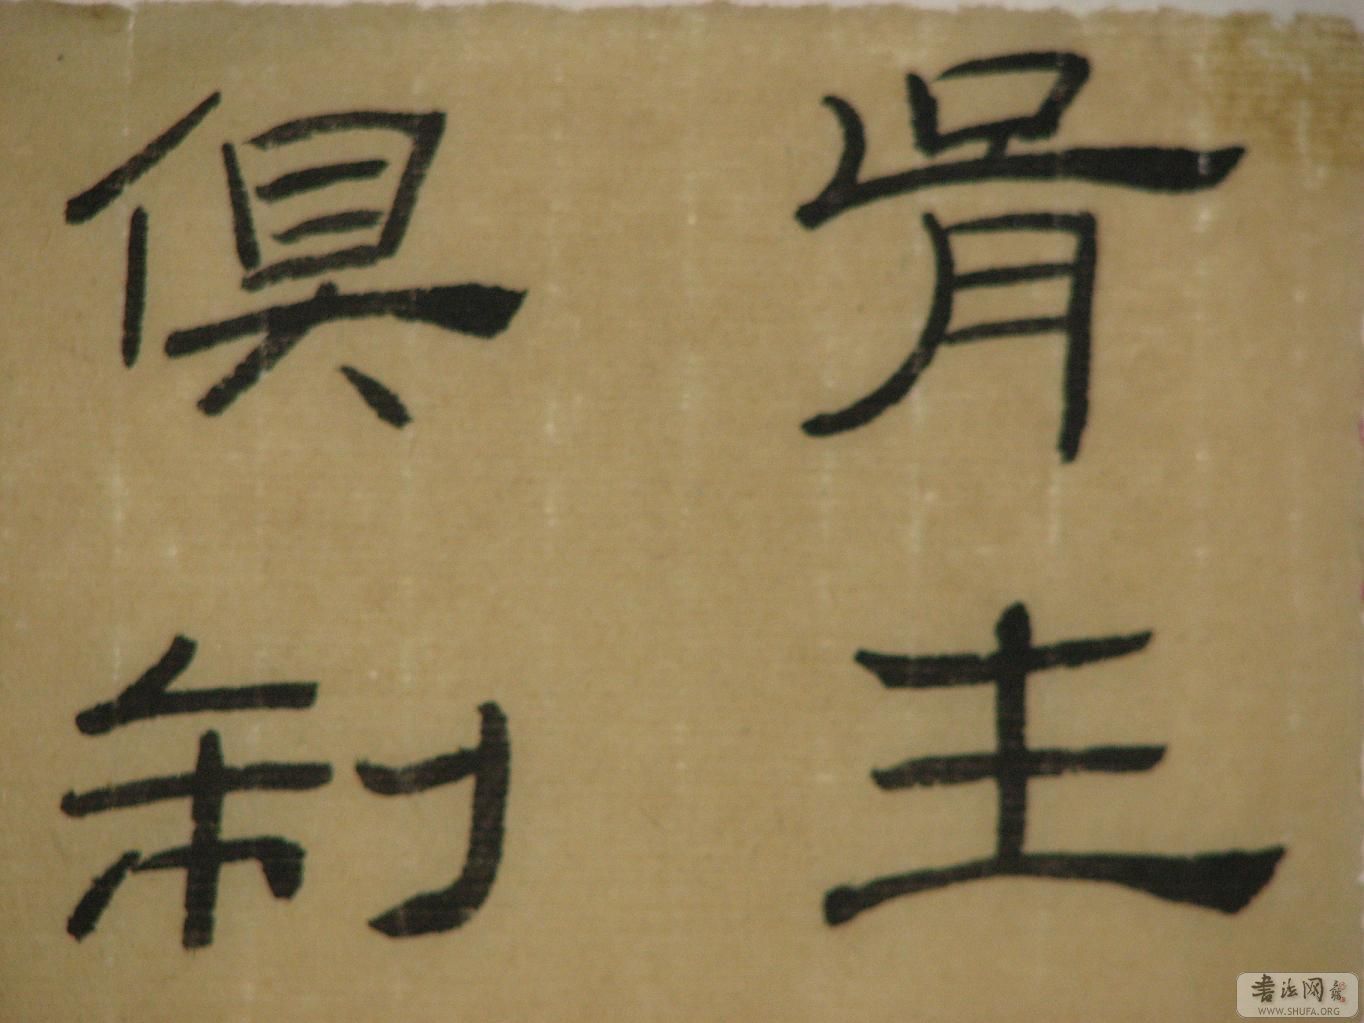 骨主
俱制
书法网
WWW.SHUFA.ORG